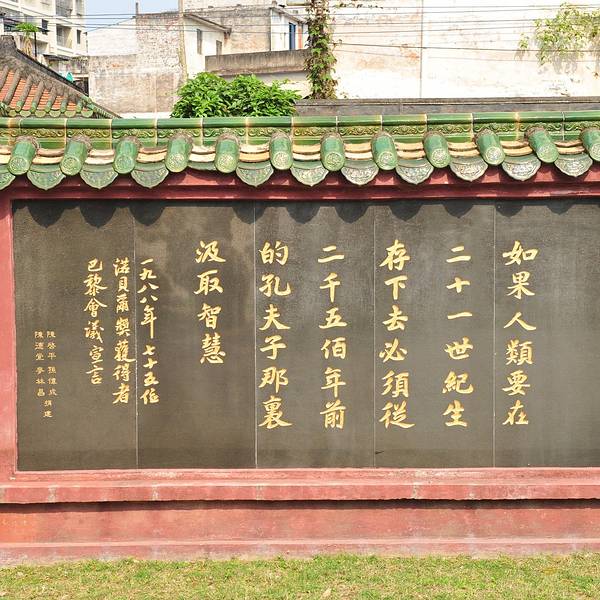 如果人類要在
二十一世紀生
存下去必須從
二千五佰年前
的孔夫子那裏
汲取智慧
一九八八年七十五位
諾貝爾獎獲得者
巴黎會議宣言
陳啓平 孫偉成 捐建
陳德堂 李林昌